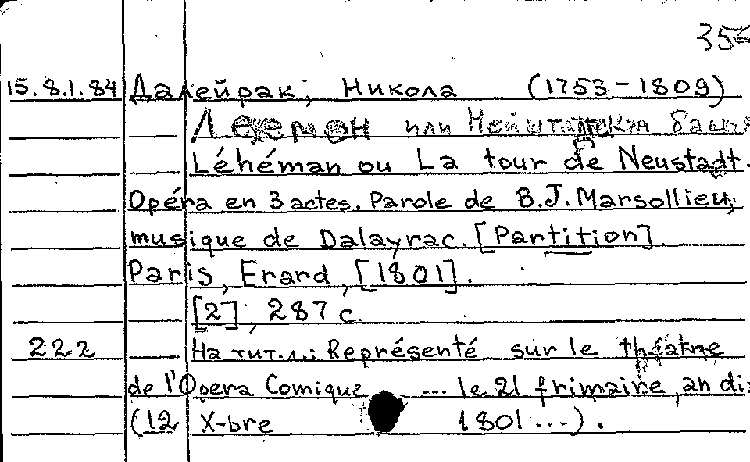 35
15.8.1.84 Далейрак, Никола (1753-1809)
Легемон или Нейштатская башня
Léhéman ou La tour de Neustadt.
Opéra en 3 actes. Parole de B.J. Marsollier,
musique de Dalayrac. [Partition].
Paris, Erard, [1801].
[2], 287 с.
222 На тит.л.: Représenté sur le théatre
de l'Opera Comique ... le 21 frimaire, an di
(12 X-bre 1801 ...).